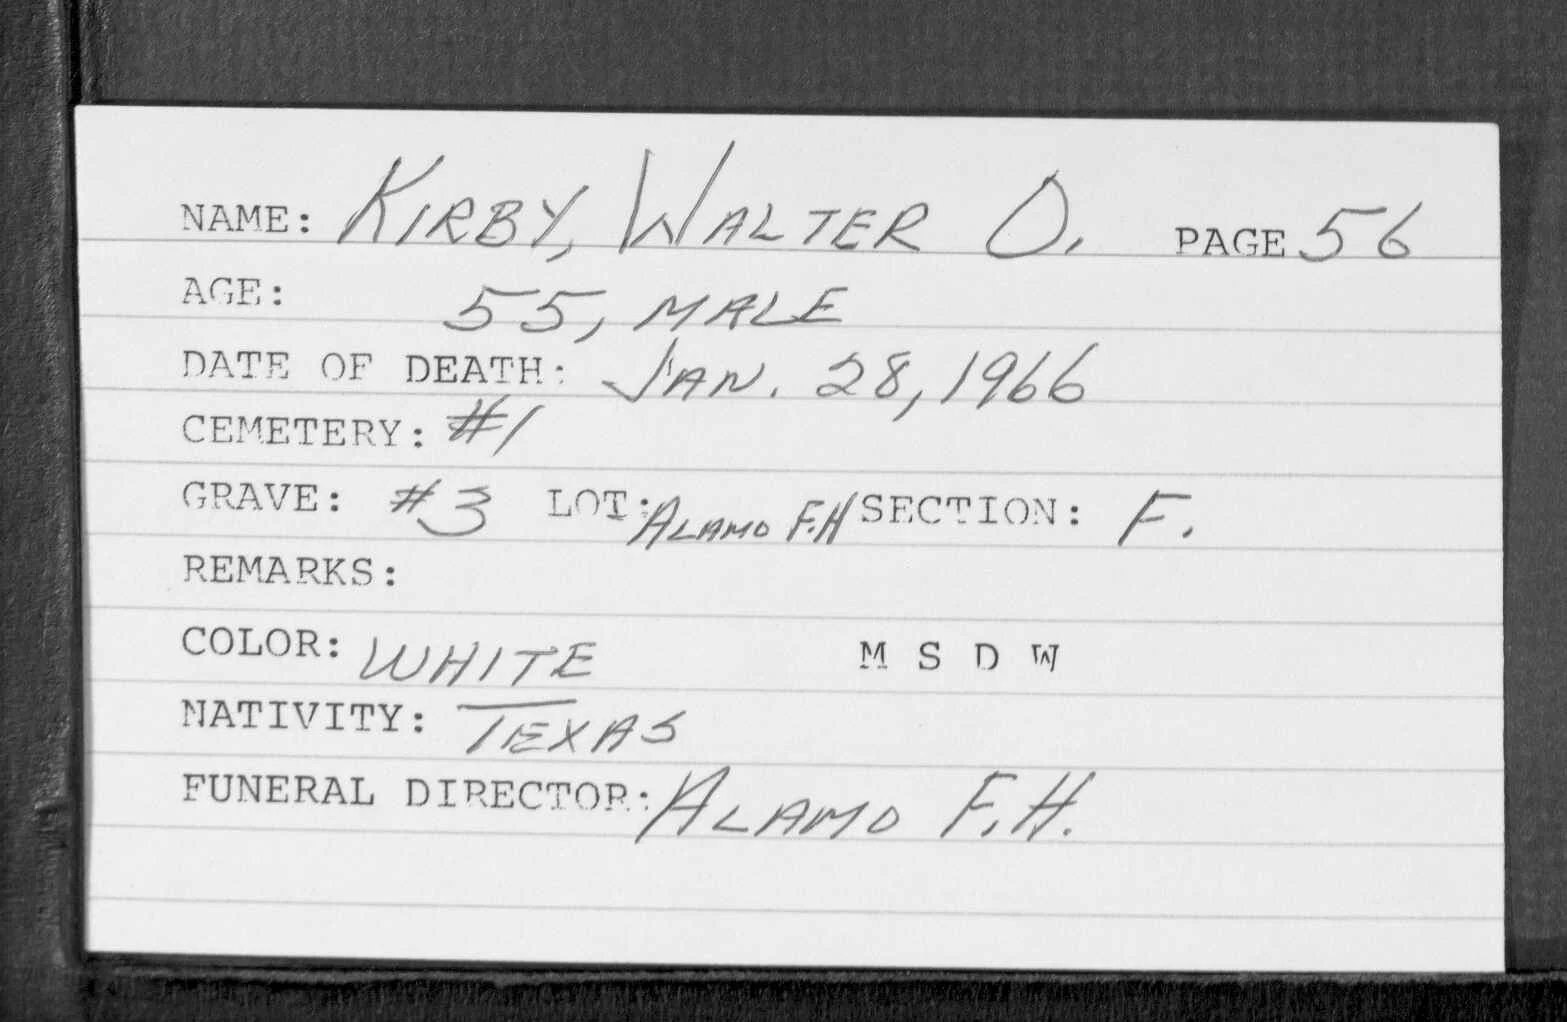 NAME: KIRBY, WALTER O. PAGE 56
AGE: 55, MALE
DATE OF DEATH: JAN. 28, 1966
CEMETERY: #1
GRAVE: #3 LOT: ALAMO F.H SECTION: F.
REMARKS:
COLOR: WHITE M S D W
NATIVITY: TEXAS
FUNERAL DIRECTOR: ALAMO F.H.